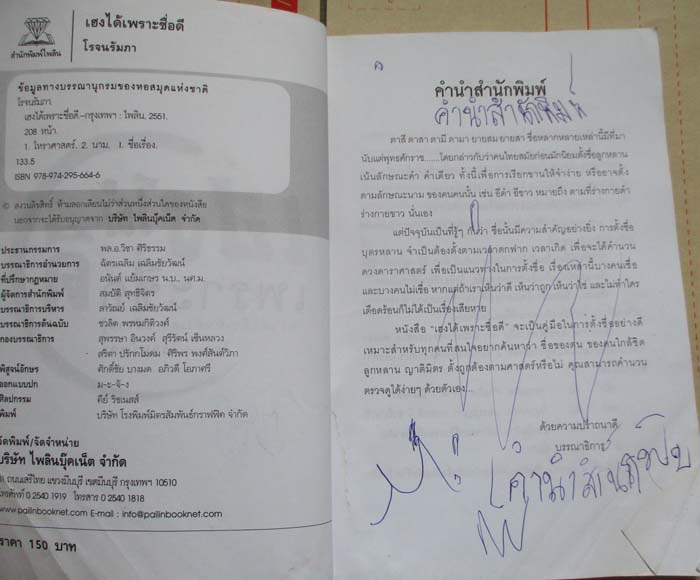 สำนักพิมพ์ไพลิน
เฮงได้เพราะชื่อดี
โรจนรัมภา
ข้อมูลทางบรรณานุกรมของหอสมุดแห่งชาติ
โรจนรัมภา
เฮงได้เพราะชื่อดี.--กรุงเทพฯ : ไพลิน, 2551.
208 หน้า.
1. โหราศาสตร์. 2. นาม. I. ชื่อเรื่อง.
133.5
ISBN 978-974-295-664-6
© สงวนลิขสิทธิ์ ห้ามลอกเลียนไม่ว่าส่วนหนึ่งส่วนใดของหนังสือ
นอกจากจะได้รับอนุญาตจาก บริษัท ไพลินบุ๊คเน็ต จำกัด
ประธานกรรมการ พล.อ.วิชา ศิริธรรม
บรรณาธิการอำนวยการ ฉัตรเฉลิม เฉลิมชัยวัฒน์
ที่ปรึกษากฎหมาย อนันต์ แย้มเกษร น.บ., นศ.ม.
ผู้จัดการสำนักพิมพ์ สมบัติ สุทธิจิตร
บรรณาธิการบริหาร ลาวัณย์ เฉลิมชัยวัฒน์
บรรณาธิการต้นฉบับ ชวลิต พรหมกิติวงศ์
กองบรรณาธิการ สุพรรษา อินวงศ์ สุรีรัตน์ เซ็นหลวง
สริตา ปรักกโมดม ศิริพร พงศ์สันติวิภา
พิสูจน์อักษร ศักดิ์ชัย บางมด อภิวดี โอภาศรี
ออกแบบปก ม-ะ-จ๊-ง
ศิลปกรรม คีย์ วิชเนสส์
พิมพ์ บริษัท โรงพิมพ์มิตรสัมพันธ์กราฟฟิค จำกัด
จัดพิมพ์/จัดจำหน่าย
บริษัท ไพลินบุ๊คเน็ต จำกัด
ถนนเสรีไทย แขวงมีนบุรี เขตมีนบุรี กรุงเทพฯ 10510
โทรศัพท์ 0 2540 1919 โทรสาร 0 2540 1818
www.pailinbooknet.com E-mail : info@pailinbooknet.com
ราคา 150 บาท
คำนำสำนักพิมพ์
คำนำสำนักพิมพ์
ตาสี ตาสา ตามี ตามา ยายสม ยายสา ชื่อหลากหลายเหล่านี้มีที่มา
นับแต่พุทธศักราช.......โดยกล่าวกับว่าคนไทยสมัยก่อนมักนิยมตั้งชื่อลูกหลาน
เน้นลักษณะคำ คำเดียว ทั้งนี้เพื่อการเรียกขานให้จำง่าย หรืออาจตั้ง
ตามลักษณะนาม ของคนคนนั้น เช่น อีดำ อีขาว หมายถึง ตามที่ร่างกายดำ
ร่างกายขาว นั่นเอง
แต่ปัจจุบันเป็นที่รู้ๆ กันว่า ชื่อนั้นมีความสำคัญอย่างยิ่ง การตั้งชื่อ
บุตรหลาน จำเป็นต้องตั้งตามเวลาตกฟาก เวลาเกิด เพื่อจะได้คำนวน
ดวงดาราศาสตร์ เพื่อเป็นแนวทางในการตั้งชื่อ เรื่องเหล่านี้บางคนเชื่อ
และบางคนไม่เชื่อ หากแต่ถ้าเราเห็นว่าดี เห็นว่าถูก เห็นว่าใช่ และไม่ทำใคร
เดือดร้อนก็ไม่ได้เป็นเรื่องเสียหาย
หนังสือ "เฮงได้เพราะชื่อดี" จะเป็นคู่มือในการตั้งชื่ออย่างดี
เหมาะสำหรับทุกคนที่สนใจอยากค้นหาว่า ชื่อของตน ของคนใกล้ชิด
ลูกหลาน ญาติมิตร ตั้งถูกต้องตามศาสตร์หรือไม่ คุณสามารถคำนวน
ตรวจดูได้ง่ายๆ ด้วยตัวเอง...
ด้วยความปรารถนาดี
บรรณาธิการ